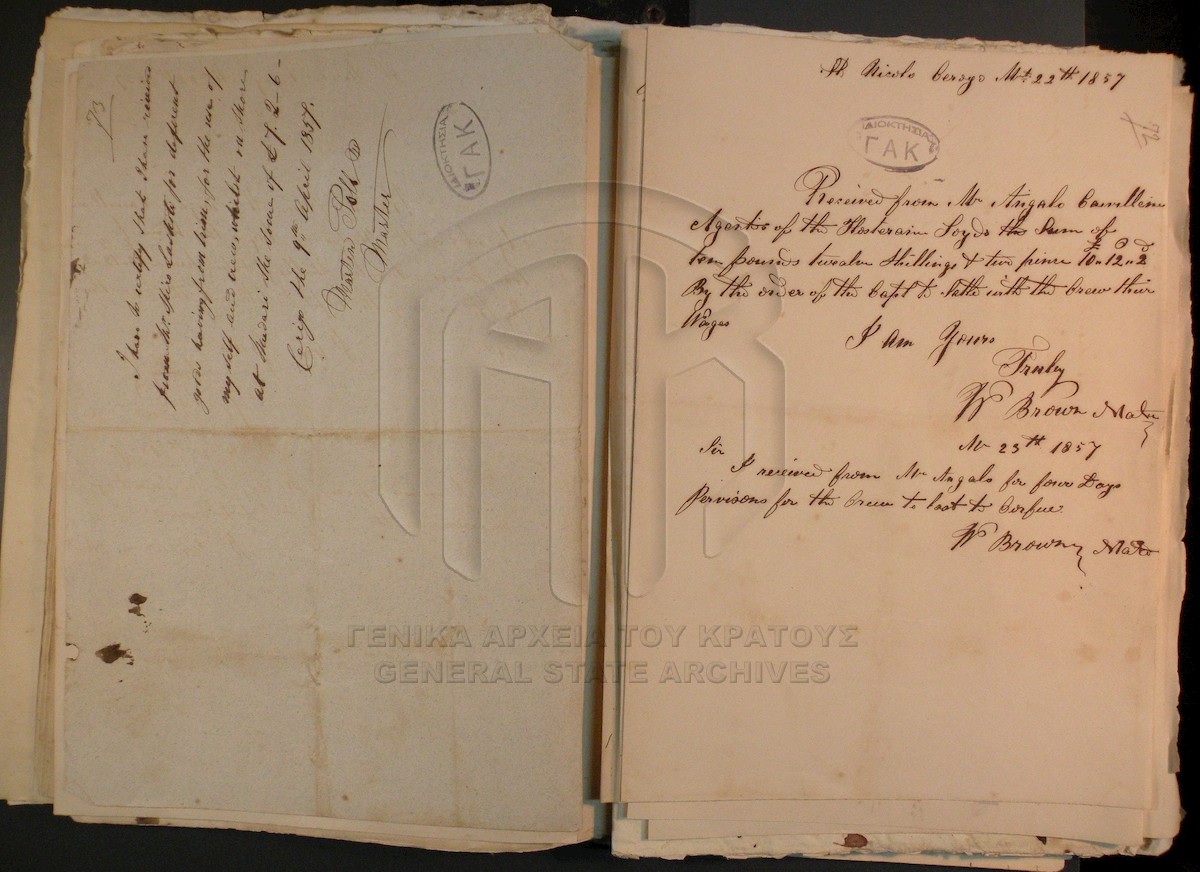 73
I have to certify that I have received
from Mr. Spiro Lectato for different
goods having from him, for the use of
my self and crew, whilst on shore
at Mudari the some of £ 7-2-6-
Cerigo the 9th April 1857.
Martin Bell
Master
ΙΔΙΟΚΤΗΣΙΑ
ΓΑΚ
St Nicolo Cerigo Mh 22th 1857
ΙΔΙΟΚΤΗΣΙΑ
ΓΑΚ
Received from Mr Angalo
Agent of the Loyds the Sum of
ten pounds twelve Shillings & two pince 10"12"2
By the order of the Capt to Sattle with the Crew their
Wages
I am Yours
Truley
W Brown Mate
Mh 23th 1857
Sir
I received from Mr Angalo for four Days
Pervisons for the Crew to last to Corfue
W Brown Mate
ΓΕΝΙΚΑ ΑΡΧΕΙΑ ΤΟΥ ΚΡΑΤΟΥΣ
GENERAL STATE ARCHIVES